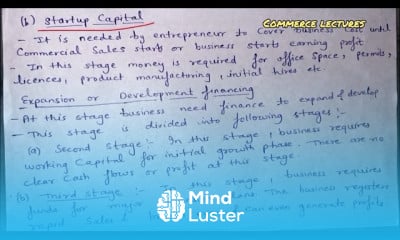 (b) Startup Capital
Commerce lectures
- It is needed by entrepreneur to cover business cost until
Commercial Sales starts or business starts earning profit
- In this stage money is required for office space, permits,
licences, product manufacturing, initial hires etc.
Expansion or Development financing
- At this stage business need finance to expand & develop
- This stage is divided into following stages:-
(a) Second stage:- In this stage, business requires
working Capital for initial growth phase. There are no
clear Cash flows or profit at this stage
(b) Third stage:- In this stage, business requires
funds for major The business registers
rapid Sales even generate profits
Mind
Luster